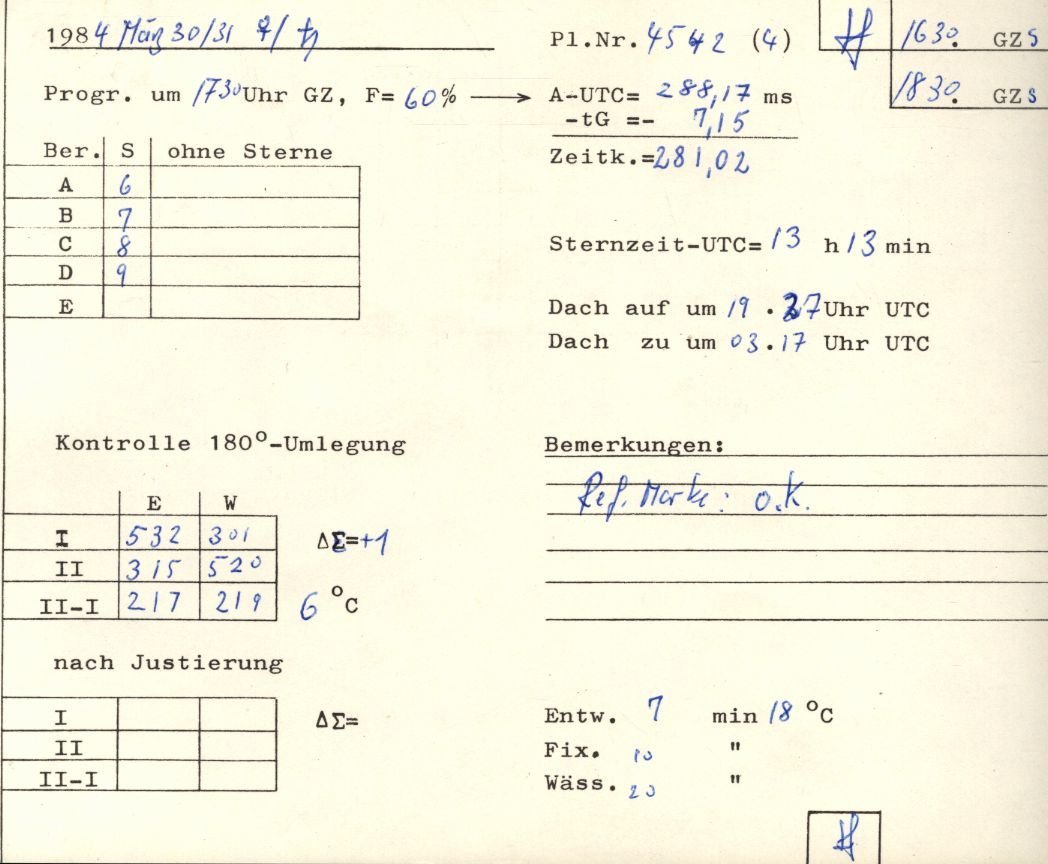 1984 März 30/31 ♀/♄
Pl.Nr. 4542 (4)
1630. GZS
Progr. um 1730 Uhr GZ, F= 60% → A-UTC= 288,17 ms
1830. GZS
-tG =- 7,15
Zeitk.=281,02
Ber. S ohne Sterne
A 6
B 7
C 8
D 9
E
Sternzeit-UTC= 13 h 13 min
Dach auf um 19 . 27 Uhr UTC
Dach zu um 03.17 Uhr UTC
Kontrolle 180°-Umlegung
E W
I 532 301 ΔΣ=+1
II 315 520
II-I 217 219 6 °C
Bemerkungen:
Ref. Marke: o.k.
nach Justierung
I ΔΣ=
II
II-I
Entw. 7 min 18 °C
Fix. 10 "
Wäss. 20 "